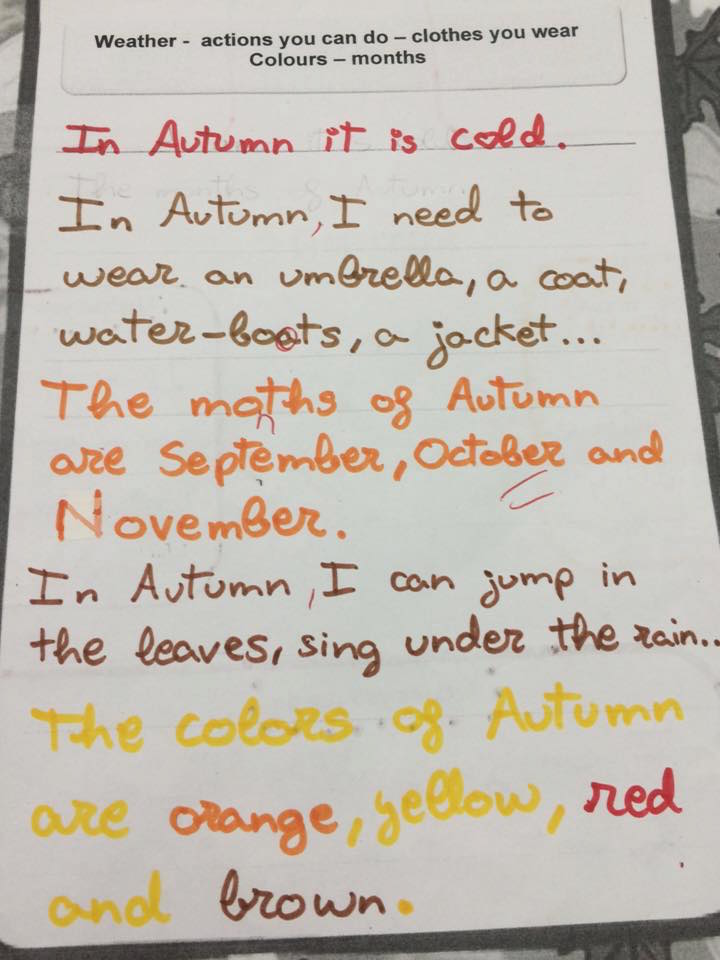 Weather - actions you can do – clothes you wear
Colours – months
In Autumn it is cold.
In Autumn, I need to
wear an umbrella, a coat,
water-boots, a jacket...
The moths of Autumn
n
are September, October and
November.
In Autumn, I can jump in
the leaves, sing under the rain..
The colors of Autumn
are orange, yellow, red
and brown.